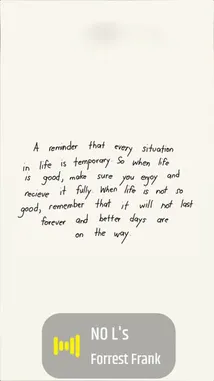 A reminder that every situation
in life is temporary. So when life
is good, make sure you enjoy and
recieve it fully. When life is not so
good, remember that it will not last
forever and better days are
on the way.
NO L's
Forrest Frank